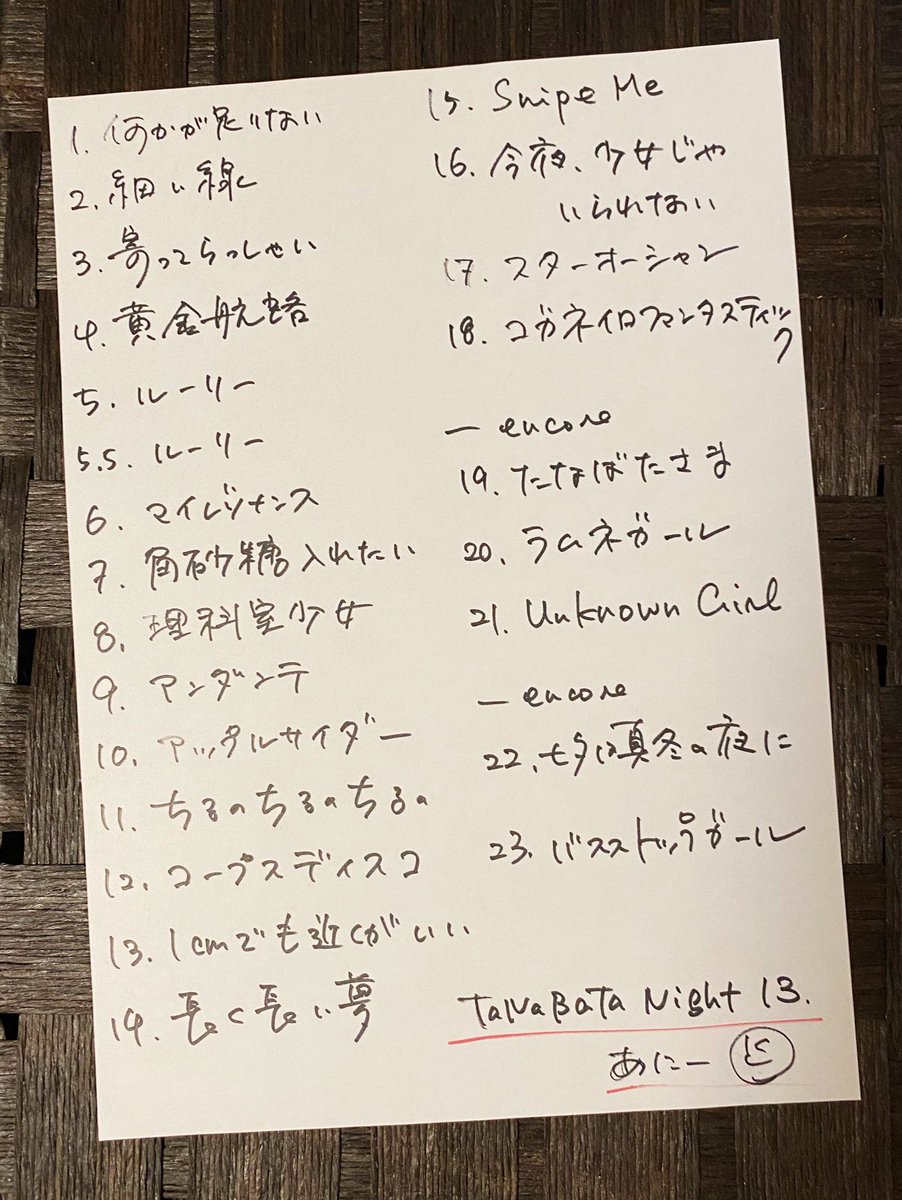 1. 何かが足りない
2. 細い線
3. 寄ってらっしゃい
4. 黄金航路
5. ルーリー
5.5. ルーリー
6. マイレジナンス
7. 角砂糖入れたい
8. 理科室少女
9. アンダンテ
10. アップルサイダー
11. ちるのちるのちるの
12. コープスディスコ
13. 1cmでも近くがいい
14. 長く長い夢
15. Snipe Me
16. 今夜、少女じゃ
いられない
17. スターオーシャン
18. コガネイロファンタスティッ
ク
― encore
19. たなばたさま
20. ラムネガール
21. Unknown Girl
― encore
22. 七夕は真冬の夜に
23. バスストップガール
TaNaBaTa Night 13.
あにー と